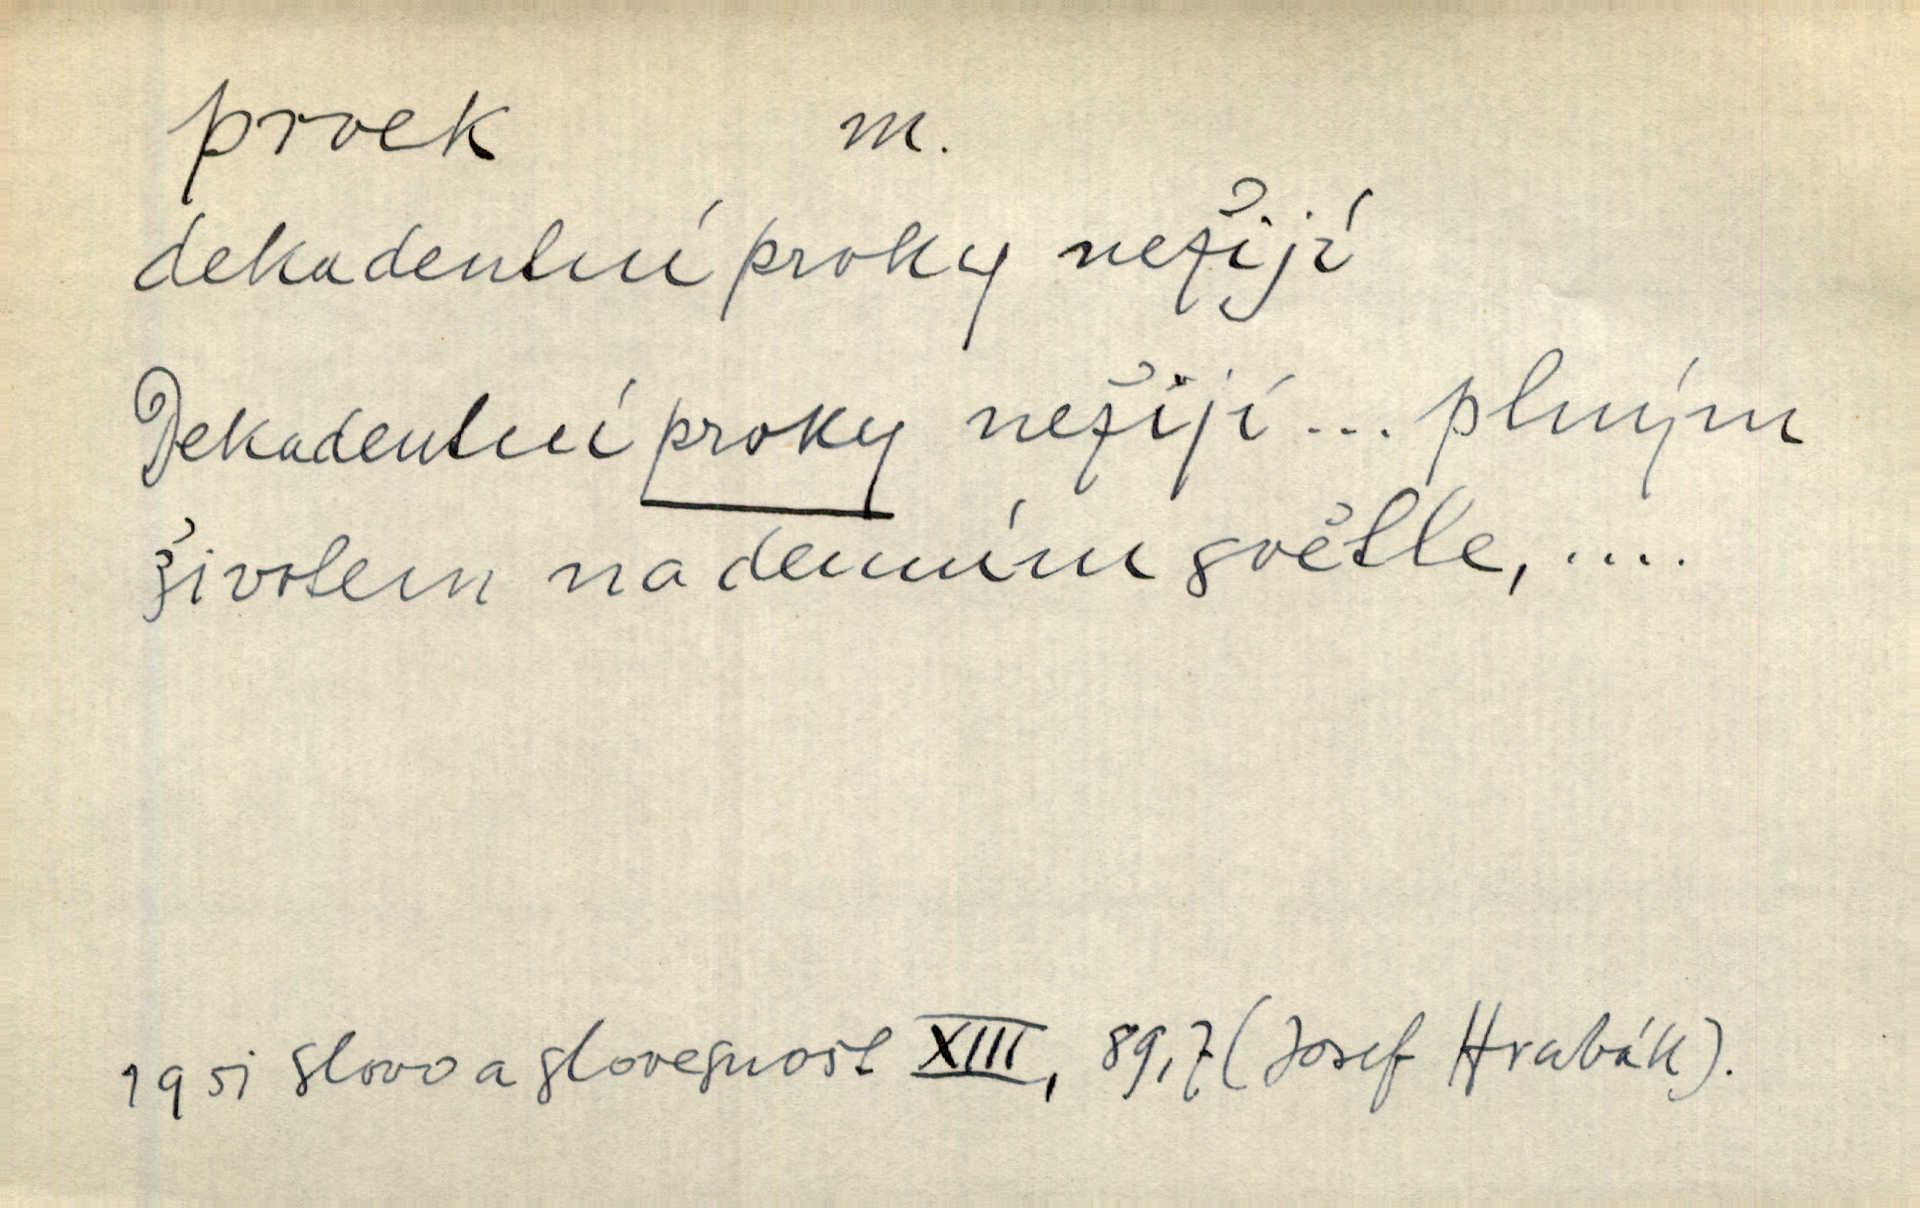 prvek m.
dekadentní prvky nežijí
Dekadentní prvky nežijí ... plným
životem na denním světle, ....
1951 Slovo a slovesnost XIII, 89,7 (Josef Hrabák).